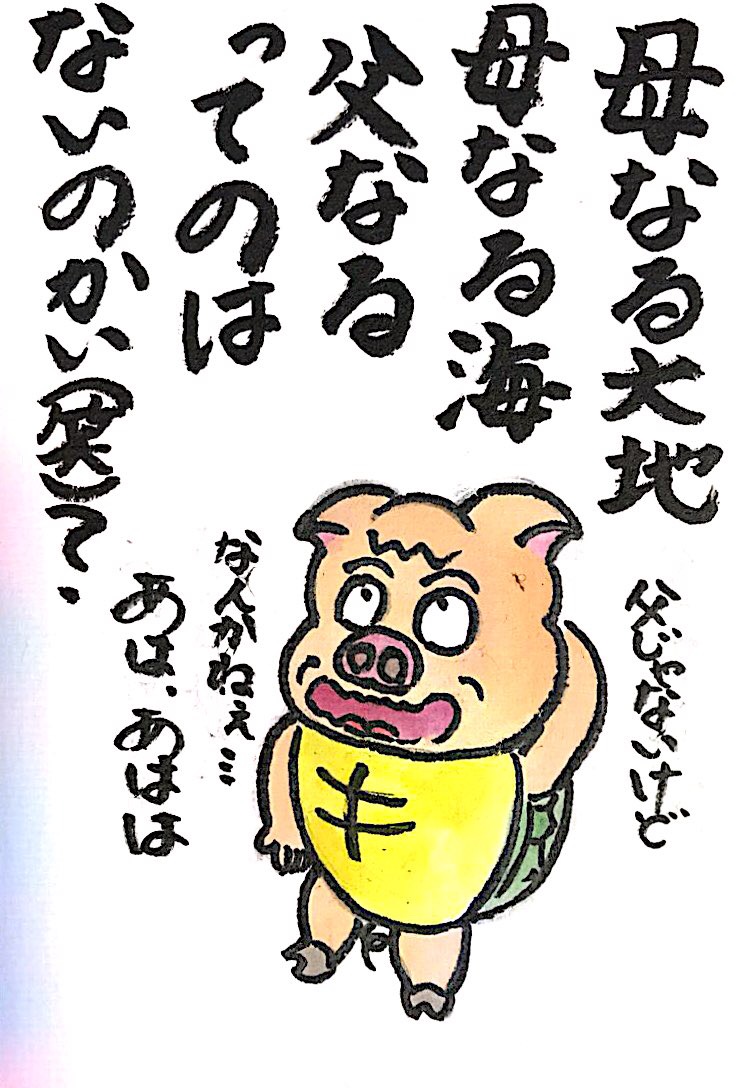 母なる大地
母なる海
父なる
ってのは
ないのかい(笑)て、
父じゃないけど
なんかねぇ…
あは、あはは
キ